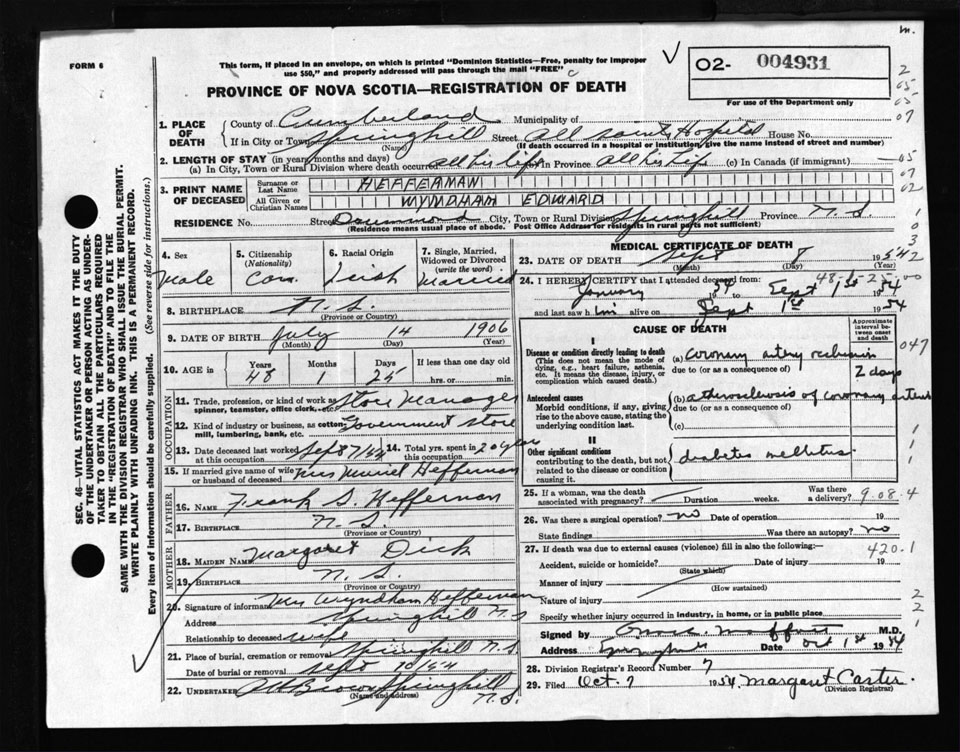 m.
FORM 6
This form, if placed in an envelope, on which is printed "Dominion Statistics—Free, penalty for improper
use $50," and properly addressed will pass through the mail "FREE"
O2- 004931
For use of the Department only
PROVINCE OF NOVA SCOTIA—REGISTRATION OF DEATH
2
05-
05-
07
1. PLACE OF DEATH
County of Cumberland Municipality of
If in City or Town Springhill Street All Saints Hospital House No.
(Name) (If death occurred in a hospital or institution, give the name instead of street and number)
2. LENGTH OF STAY (in years, months and days)
(a) In City, Town or Rural Division where death occurred all his life in Province all his life (c) In Canada (if immigrant) 05
07
02
3. PRINT NAME OF DECEASED
Surname or Last Name HEFFERMAN
All Given or Christian Names WYNDHAM EDWARD
RESIDENCE No. Street Drummond City, Town or Rural Division Springhill Province N.S.
(Residence means usual place of abode. Post Office Address for residents in rural parts not sufficient)
1
0
3
4. Sex Male
5. Citizenship (Nationality) Can.
6. Racial Origin Irish
7. Single, Married, Widowed or Divorced (write the word) Married
8. BIRTHPLACE N.S.
(Province or Country)
9. DATE OF BIRTH July 14 1906
(Month) (Day) (Year)
10. AGE in Years 48 Months 1 Days 25 If less than one day old hrs. or min.
OCCUPATION
11. Trade, profession, or kind of work as spinner, teamster, office clerk, etc. Store Manager
12. Kind of industry or business, as cotton mill, lumbering, bank, etc. Government Store
13. Date deceased last worked at this occupation Sep 8/7/54
14. Total yrs. spent in this occupation 20 years
15. If married give name of wife or husband of deceased Mrs Muriel Heffernan
FATHER
16. NAME Frank S. Heffernan
17. BIRTHPLACE N.S.
(Province or Country)
MOTHER
18. MAIDEN NAME Margaret Dick
19. BIRTHPLACE N.S.
(Province or Country)
20. Signature of informant Mrs Wyndham Heffernan
Address Springhill N.S
Relationship to deceased wife
21. Place of burial, cremation or removal Springhill N.S.
Date of burial or removal Sept 10/54
22. UNDERTAKER A H Brown Springhill
(Name and address) N.S.
MEDICAL CERTIFICATE OF DEATH
23. DATE OF DEATH Sept 8 1954
(Month) (Day) (Year)
24. I HEREBY CERTIFY that I attended deceased from: 48-1-25-00
January 1954 Sept 1st 1954
and last saw him alive on Sept 1st 1954
CAUSE OF DEATH
Approximate interval between onset and death
I
Disease or condition directly leading to death
(This does not mean the mode of dying, e.g., heart failure, asthenia, etc. It means the disease, injury, or complication which caused death.)
(a) coronary artery occlusion 2 days
due to (or as a consequence of)
047
Antecedent causes
Morbid conditions, if any, giving rise to the above cause, stating the underlying condition last.
(b) atherosclerosis of coronary arteries
due to (or as a consequence of)
(c)
II
Other significant conditions
contributing to the death, but not related to the disease or condition causing it.
diabetes mellitus
25. If a woman, was the death associated with pregnancy? Duration weeks. Was there a delivery?
9-08-4
26. Was there a surgical operation? no Date of operation 19
State findings Was there an autopsy? no
27. If death was due to external causes (violence) fill in also the following:—
420.1
Accident, suicide or homicide? Date of injury 19
(State which)
Manner of injury
(How sustained)
Nature of injury
Specify whether injury occurred in industry, in home, or in public place
2
2
1
Signed by M.D.
Address Springhill Date Oct 1st 1954
28. Division Registrar's Record Number 7
29. Filed Oct. 7 1954 Margaret Carter.
(Division Registrar)
SEC. 46—VITAL STATISTICS ACT MAKES IT THE DUTY
OF THE UNDERTAKER OR PERSON ACTING AS UNDER-
TAKER TO OBTAIN ALL THE PARTICULARS REQUIRED
IN THE "REGISTRATION OF DEATH" AND TO FILE THE
SAME WITH THE DIVISION REGISTRAR WHO SHALL ISSUE THE BURIAL PERMIT.
WRITE PLAINLY WITH UNFADING INK. THIS IS A PERMANENT RECORD.
Every item of information should be carefully supplied. (See reverse side for instructions.)